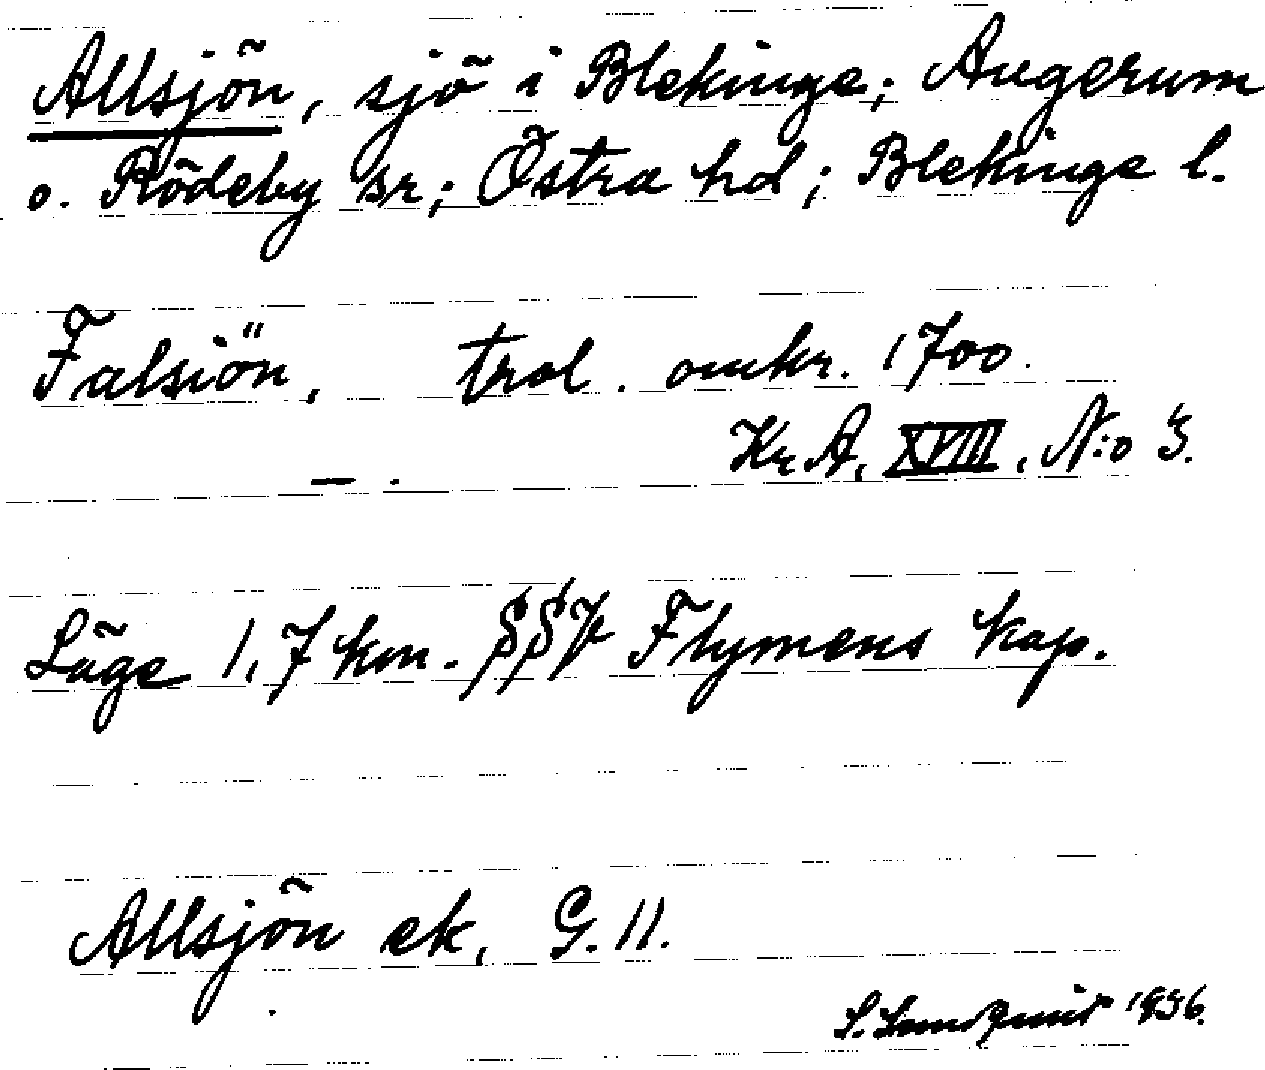 Allsjön, sjö i Blekinge; Augerum
o. Rödeby sr; Östra hd; Blekinge l.
Falsiön, trol. omkr. 1700.
Kr. A. XVIII. N:o 3.
— .
Läge 1,7 km. SSV Flymens kap.
Allsjön ek. G. 11.
S. Landqvist 1936.